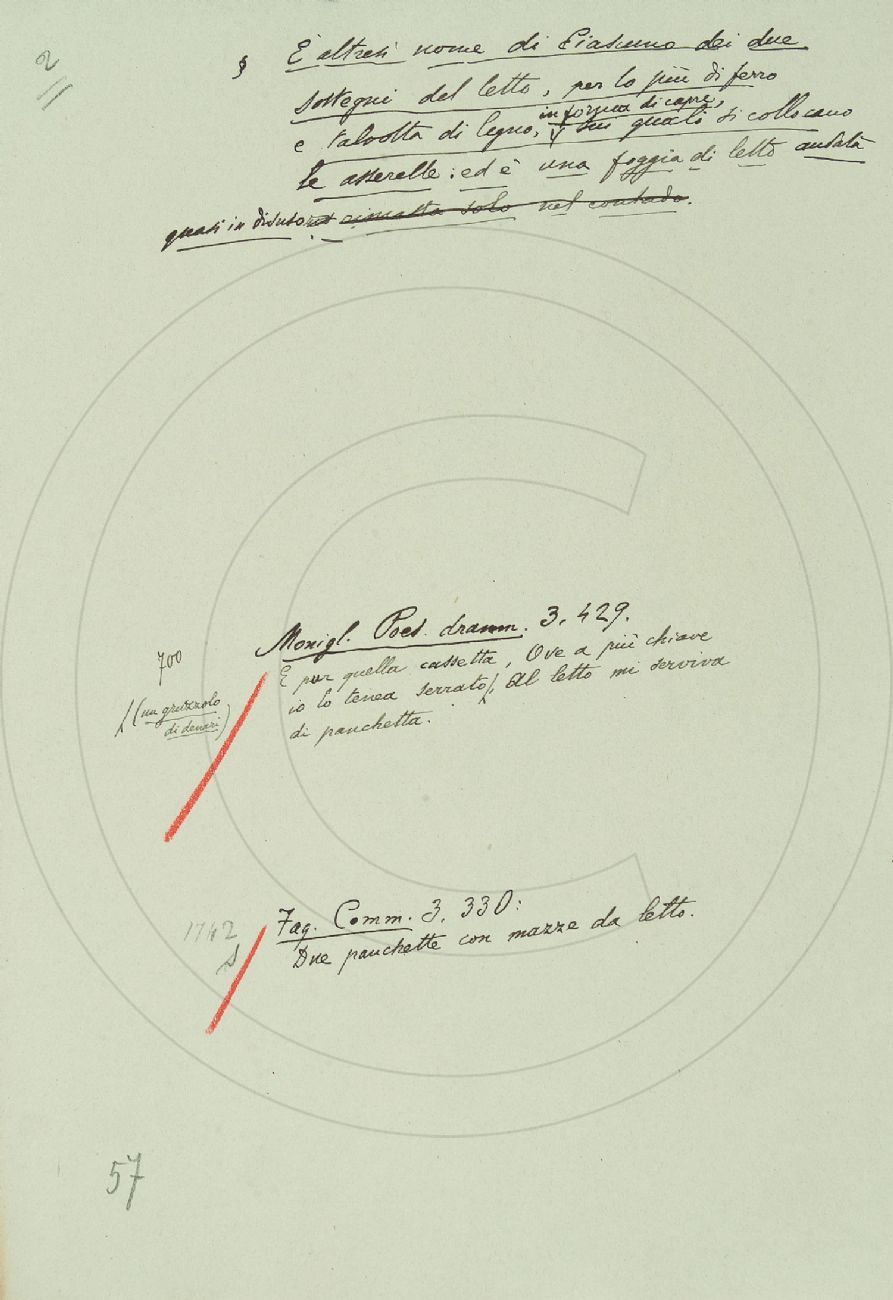 2
§ È altresì nome di Ciascuno dei due
sostegni del letto, per lo più di ferro
in forma di capre,
e talvolta di legno, sui quali si collocano
le asserelle: ed è una foggia di letto andata
quasi in disuso rimasta solo nel contado.
700
Monigl. Poes. dramm. 3. 429.
E pur quella cassetta, Ove a più chiave
(un gruzzolo
io lo tenea serrato, Al letto mi serviva
di denari)
di panchetta.
1742
Fag. Comm. 3. 330:
Due panchette con mazze da letto.
57